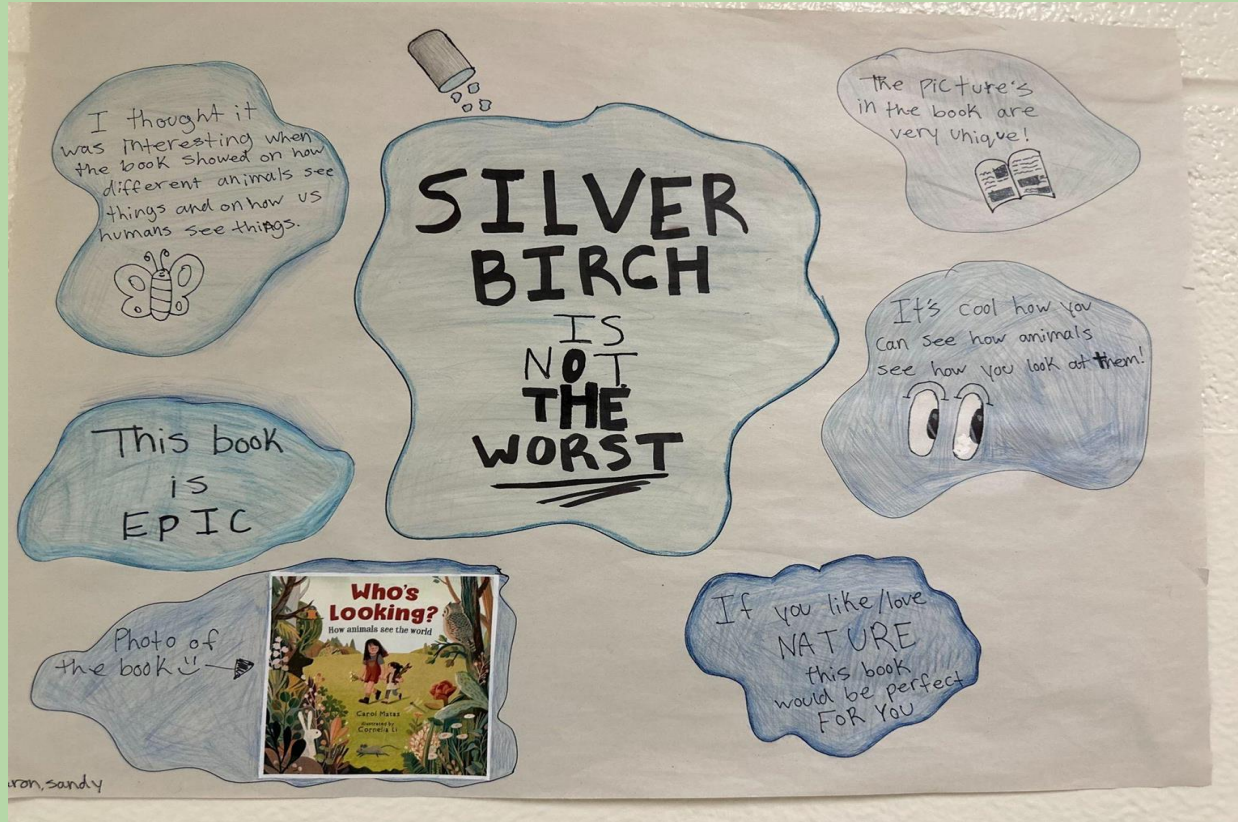 I thought it
was interesting when
the book showed on how
different animals see
things and on how us
humans see things.
SILVER
BIRCH
IS
NOT
THE
WORST
The picture's
in the book are
very unique!
It's cool how you
can see how animals
see how you look at them!
This book
is
EPIC
Photo of
the book
Who's
Looking?
How animals see the world
Carol Matas
illustrated by
Cornelia Li
If you like/love
NATURE
this book
would be perfect
FOR YOU
sandy